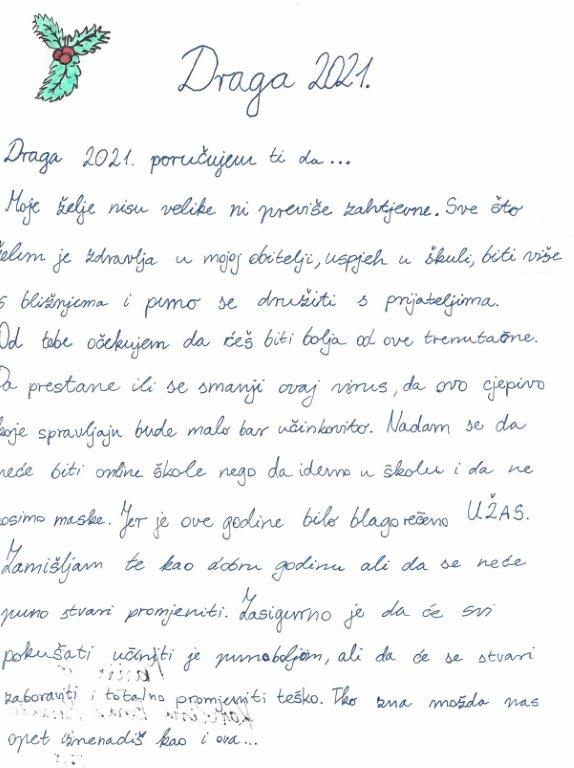 Draga 2021.
Draga 2021. poručujem ti da...
Moje želje nisu velike ni previše zahtjevne. Sve što
želim je zdravlja u mojoj obitelji, uspjeh u škuli, biti više
s bližnjema i puno se družiti s prijateljima.
Od tebe očekujem da ćeš biti bolja od ove trenutačne.
Da prestane ili se smanji ovaj virus, da ovo cjepivo
koje spravljaju bude malo bar učinkovito. Nadam se da
neće biti online škole nego da idemo u školu i da ne
nosimo maske. Jer je ove godine bilo blago rečeno UŽAS.
Zamišljam te kao dobru godinu ali da se neće
puno stvari promjeniti. Zasigurno je da će svi
pokušati učiniti je punoboljom, ali da će se stvari
zaboraviti i totalno promjeniti teško. Tko zna možda nas
opet iznenadiš kao i ova...